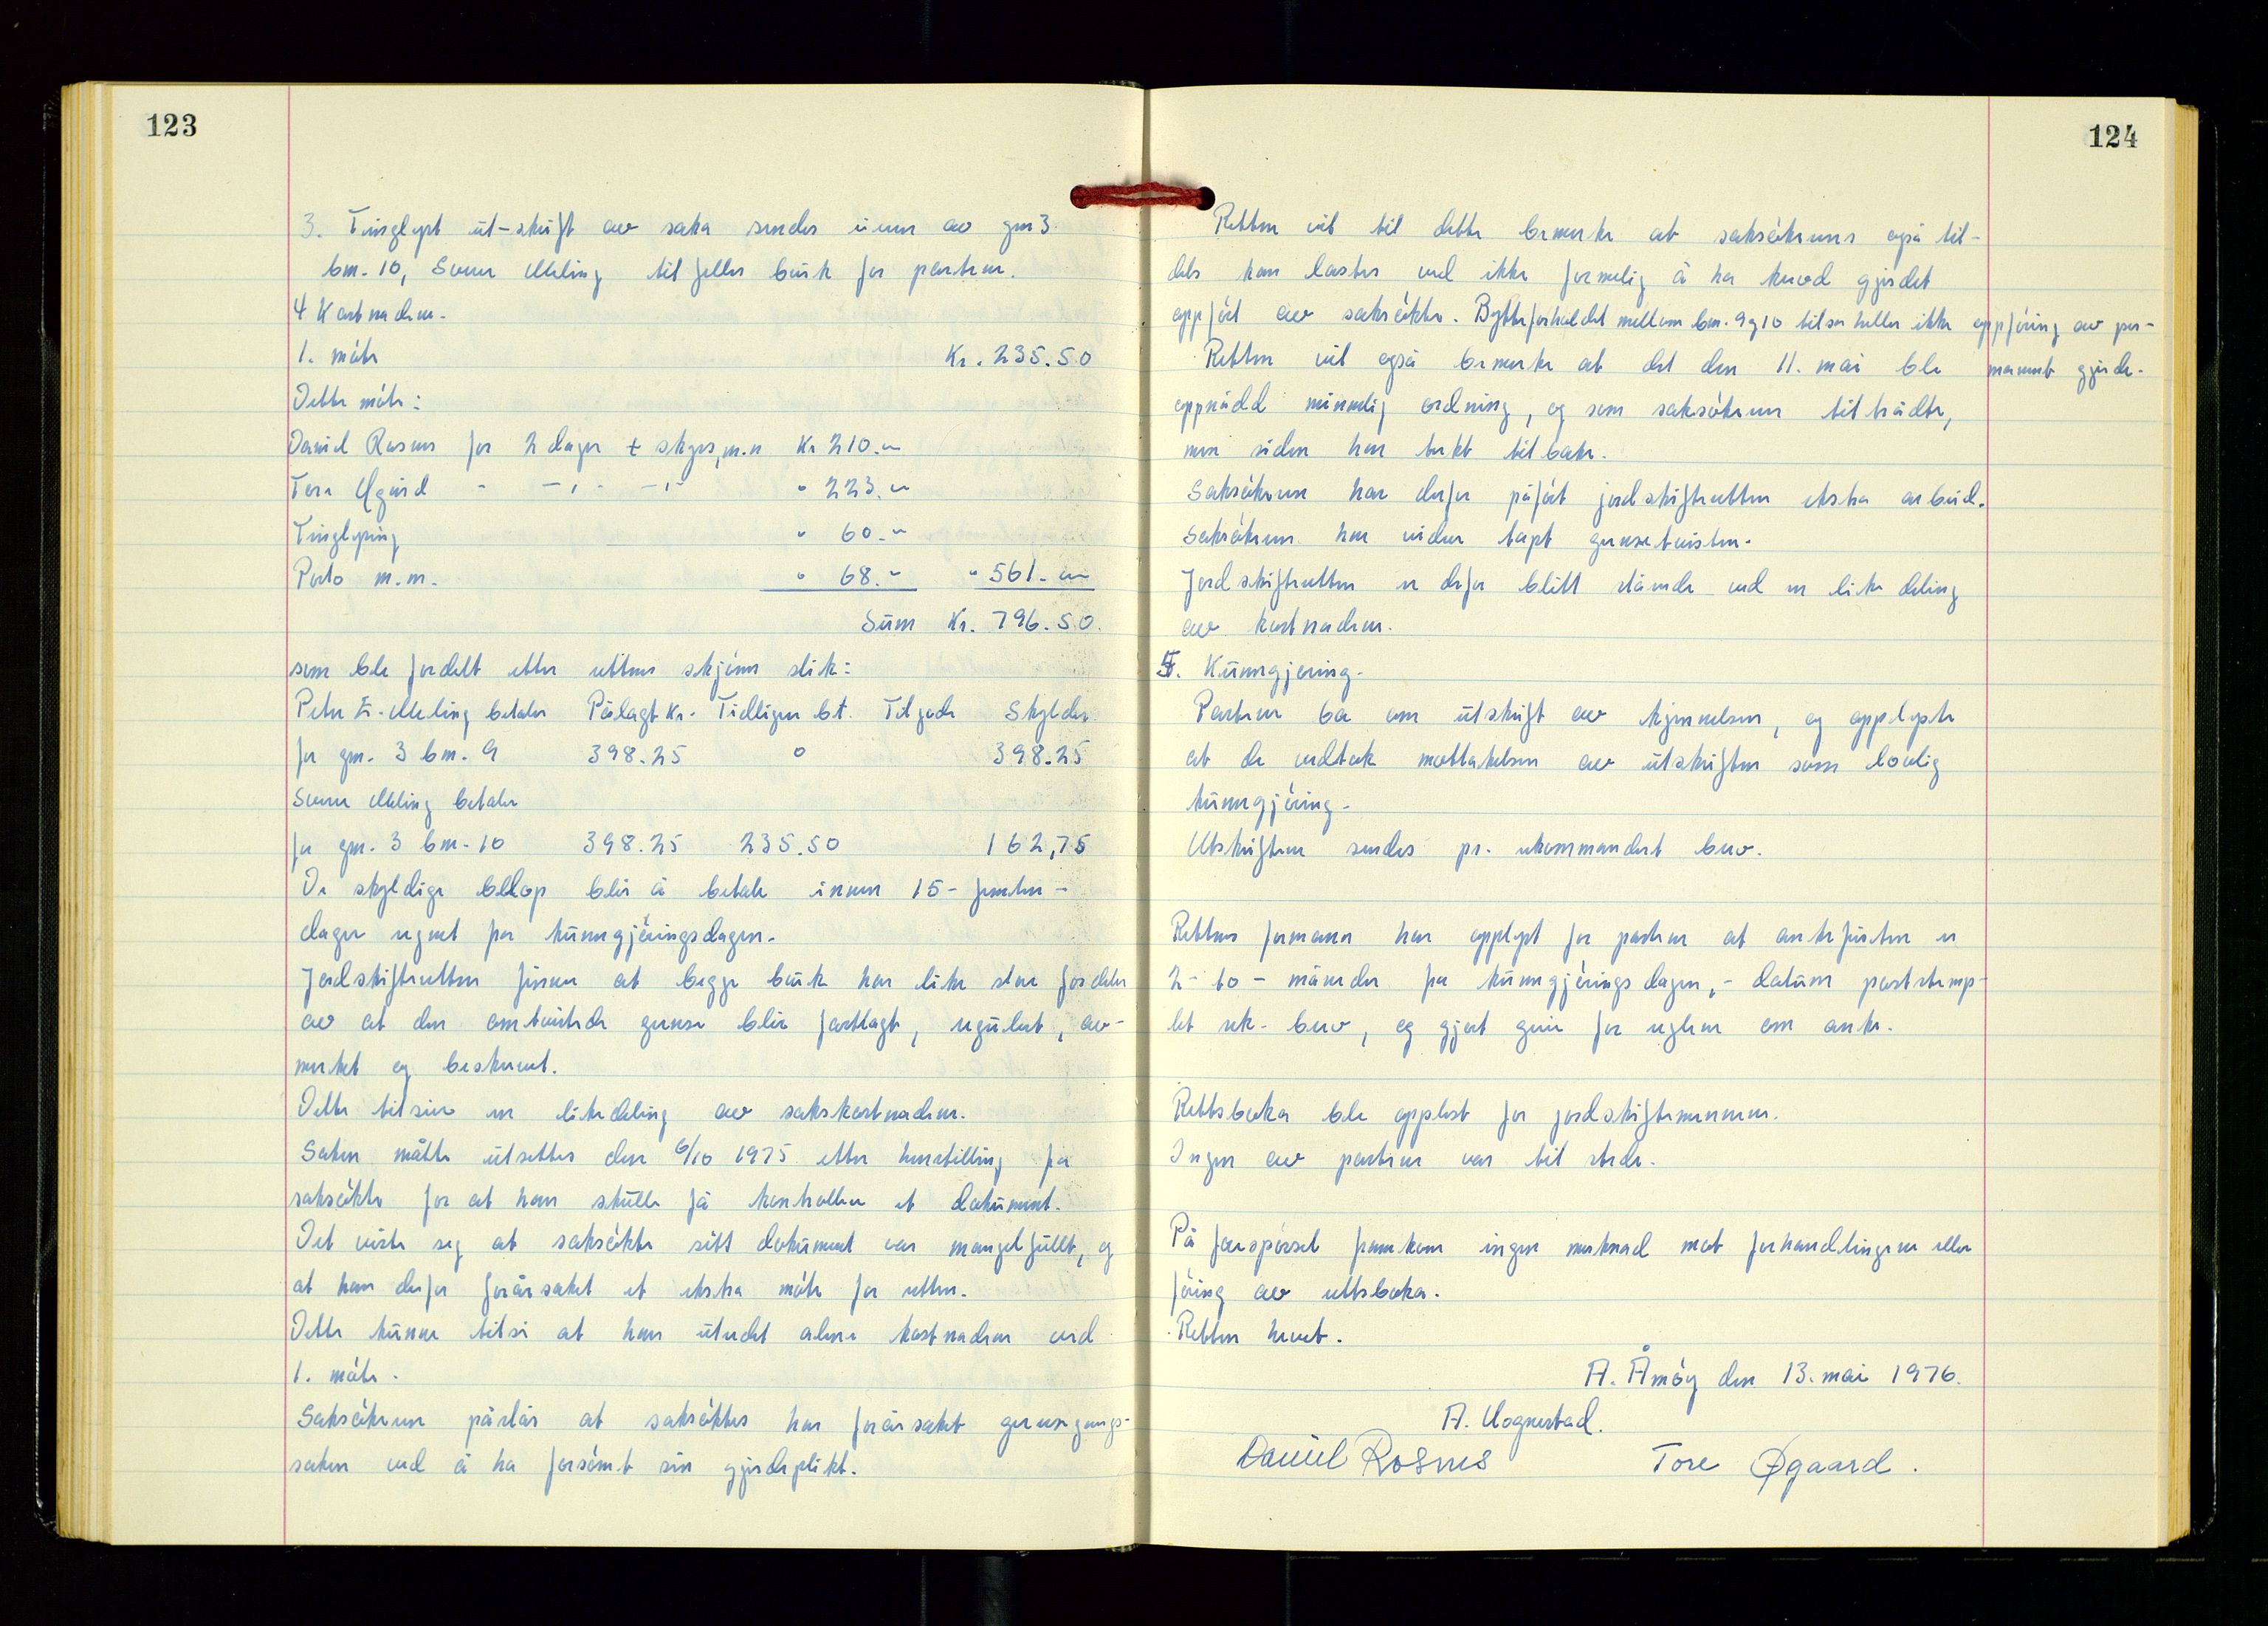 123
3. Tinglyst ut-skrift av saka sendes eieren av gnr 3
bnr. 10, Sverre Meling til felles bruk for partene.
4 Kostnadene.
1. møte Kr. 235.50
Dette møte:
Daniel Rosnes for 2 dager + skyss, m.m Kr 210.-
Tore Øgård - -,- -,- " 223.-
Tinglysing " 60.-
Porto m.m. " 68.- " 561.-
Sum Kr. 796.50.
som ble fordelt etter rettens skjønn slik:
Peter E. Meling betaler Pålagt kr. Tidligere bt. Tilgode Skylder
for gnr. 3 bnr. 9 398.25 0 398.25
Sverre Meling betaler
for gnr. 3 bnr. 10 398.25 235.50 162,75
De skyldige beløp blir å betale innen 15- femten-
dager regnet fra kunngjøringsdagen.
Jordskifteretten finner at begge bruk har like stor fordeler
av at den omtvistede grense blir fastlagt, regulert, av-
merket og beskrevet.
Dette tilsier en likedeling av sakskostnadene.
Saken måtte utsettes den 6/10 1975 etter henstilling fra
saksøkte for at han skulle få kontrollere et dokument.
Det viste seg at saksøkte sitt dokument var mangelfullt, og
at han derfor forårsaket et ekstra møte for retten.
Dette kunne tilsi at han utredet alene kostnadene ved
1. møte.
Saksøkeren påstår at saksøktes har forårsaket grensegangs-
saken ved å ha forsømt sin gjerdeplikt.
124
Retten vil til dette bemerke at saksøkerens også til-
dels kan lastes ved ikke formelig å ha krevd gjerdet
oppført av saksøkte. Bytteforholdet mellom bnr. 9 og 10 tilsa heller ikke oppføring av per-
manent gjerde.
Retten vil også bemerke at det den 11. mai ble
oppnådd minnelig ordning, og som saksøkeren tiltrådte,
men siden har trukket tilbake.
Saksøkeren har derfor påført jordskifteretten ekstra arbeid.
Saksøkeren har videre tapt grensetvisten.
Jordskifteretten er derfor blitt stående ved en lik deling
av kostnadene.
5. Kunngjøring.
Partene ba om utskrift av kjennelsen, og opplyste
at de vedtok mottakelsen av utskriften som lovlig
kunngjøring.
Utskriftene sendes pr. rekommandert brev.
Rettens formann har opplyst for partene at ankefristen er
2- to - måneder fra kunngjøringsdagen,- datum poststemp-
let rek. brev, og gjort greie for reglene om anke.
Rettsboka ble opplest for jordskiftemennene.
Ingen av partene var til stede.
På forespørsel framkom ingen merknad mot forhandlingene eller
føring av rettsboka.
Retten hevet.
A. Åmøy den 13. mai 1976.
A. Vognestad.
Daniel Rosnes Tore Øgaard.